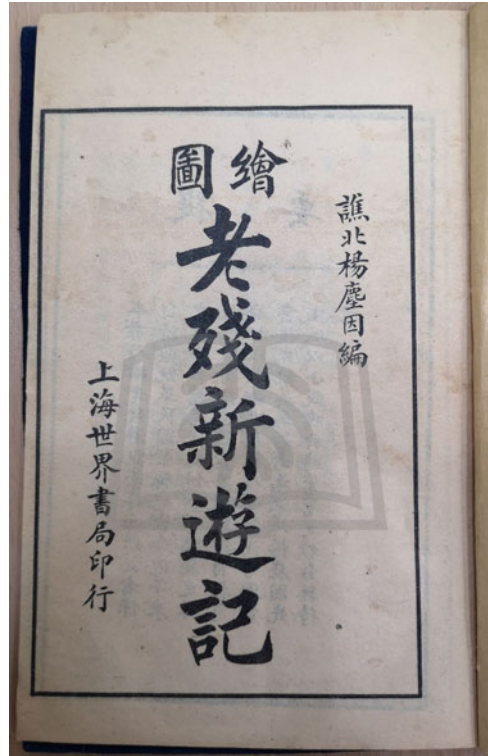 譙北楊塵因編
繪圖
老殘新遊記
上海世界書局印行